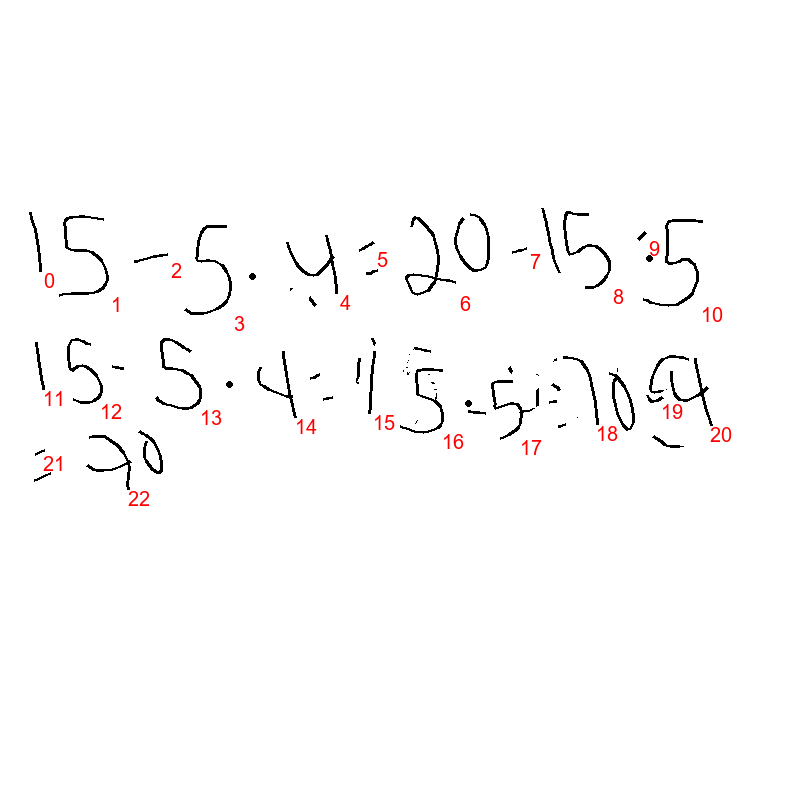 15 - 5 · 4 = 20 - 15 : 5
0 1 2 3 4 5 6 7 8 9 10
15 - 5 · 4 = 15 · 5 = 70 4
11 12 13 14 15 16 17 18 19 20
= 20
21 22